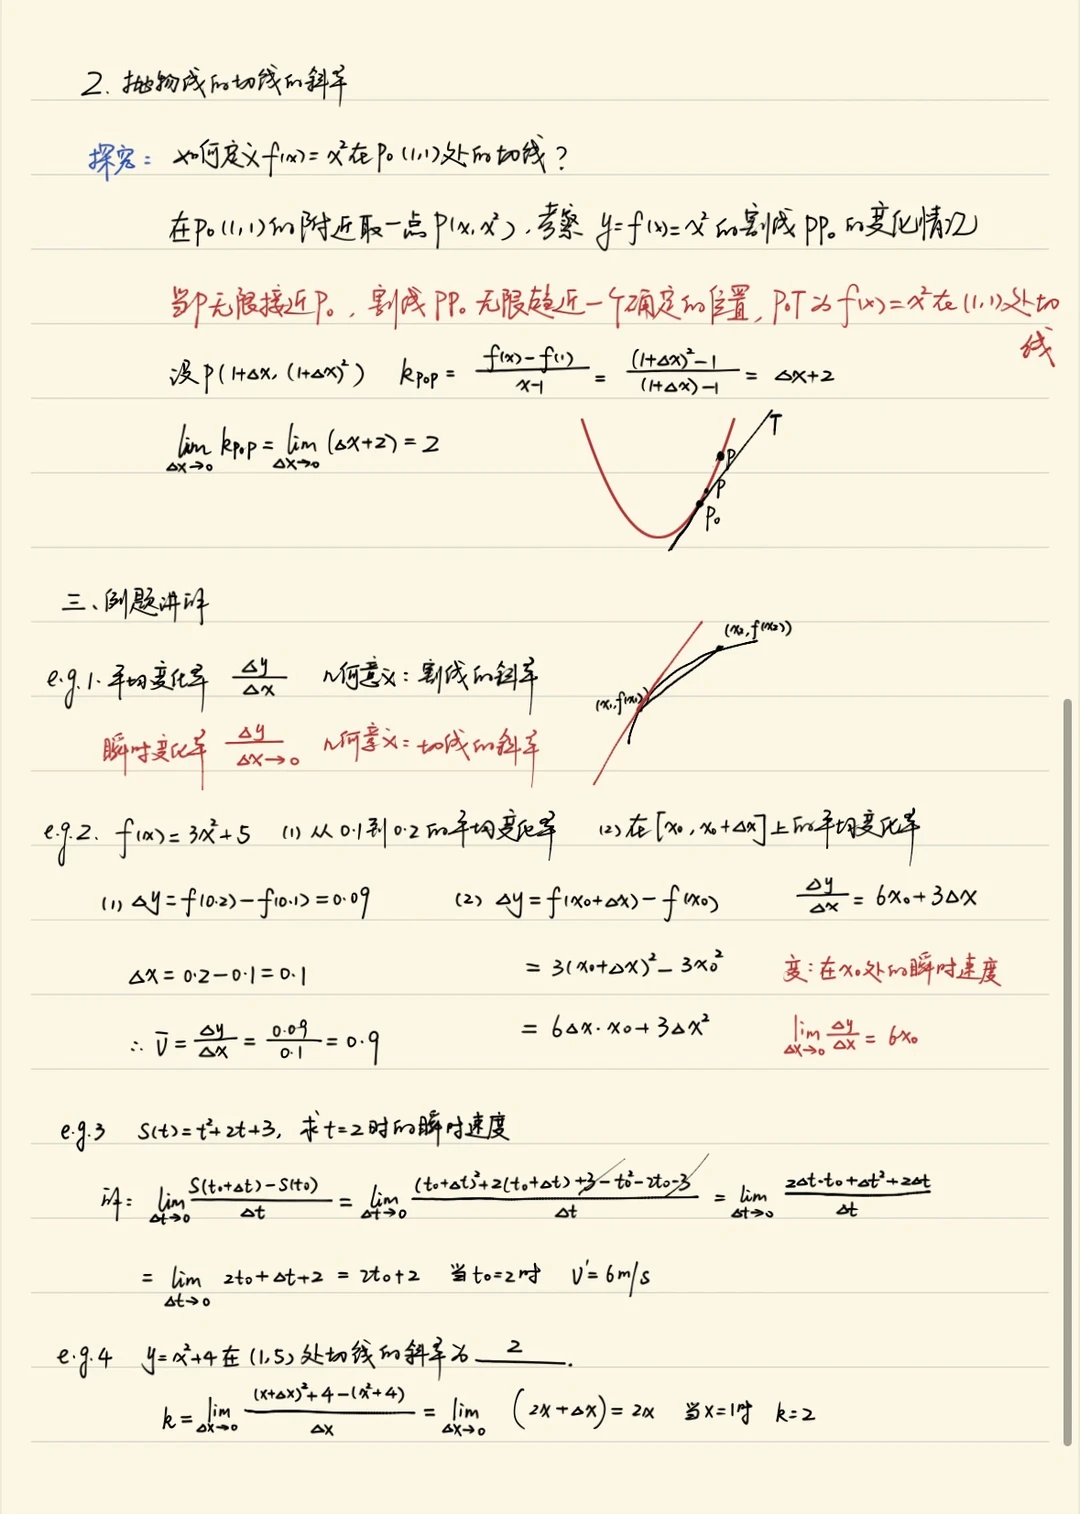 2. 抛物线的切线的斜率
探究: 如何定义f(x)=x²在P₀(1,1)处的切线?
在P₀(1,1)的附近取一点P(x,x²), 考察 y=f(x)=x²的割线PP₀的变化情况
当P无限接近P₀, 割线PP₀无限趋近一个确定的位置, P₀T为f(x)=x²在(1,1)处切
线
设P(1+Δx, (1+Δx)²) k_{P₀P} = \frac{f(x)-f(1)}{x-1} = \frac{(1+Δx)²-1}{(1+Δx)-1} = Δx+2
\lim_{Δx→0} k_{P₀P} = \lim_{Δx→0} (Δx+2) = 2
T
P
P
P₀
三、例题讲解
e.g.1. 平均变化率 \frac{Δy}{Δx} 几何意义: 割线的斜率
(x₂,f(x₂))
(x₁,f(x₁))
瞬时变化率 \frac{Δy}{Δx→0} 几何意义: 切线的斜率
e.g.2. f(x)=3x²+5 (1) 从0.1到0.2的平均变化率 (2) 在[x₀, x₀+Δx]上的平均变化率
(1) Δy=f(0.2)-f(0.1)=0.09 (2) Δy=f(x₀+Δx)-f(x₀) \frac{Δy}{Δx} = 6x₀+3Δx
Δx=0.2-0.1=0.1 = 3(x₀+Δx)²-3x₀² 变:在x₀处的瞬时速度
∴ \bar{v} = \frac{Δy}{Δx} = \frac{0.09}{0.1} = 0.9 = 6Δx·x₀+3Δx² \lim_{Δx→0} \frac{Δy}{Δx} = 6x₀
e.g.3 S(t)=t²+2t+3, 求t=2时的瞬时速度
解: \lim_{Δt→0} \frac{S(t₀+Δt)-S(t₀)}{Δt} = \lim_{Δt→0} \frac{(t₀+Δt)²+2(t₀+Δt)+3-t₀²-2t₀-3}{Δt} = \lim_{Δt→0} \frac{2Δt·t₀+Δt²+2Δt}{Δt}
= \lim_{Δt→0} 2t₀+Δt+2 = 2t₀+2 当t₀=2时 v'=6m/s
e.g.4 y=x²+4在(1,5)处切线的斜率为 2 .
k = \lim_{Δx→0} \frac{(x+Δx)²+4-(x²+4)}{Δx} = \lim_{Δx→0} (2x+Δx)=2x 当x=1时 k=2